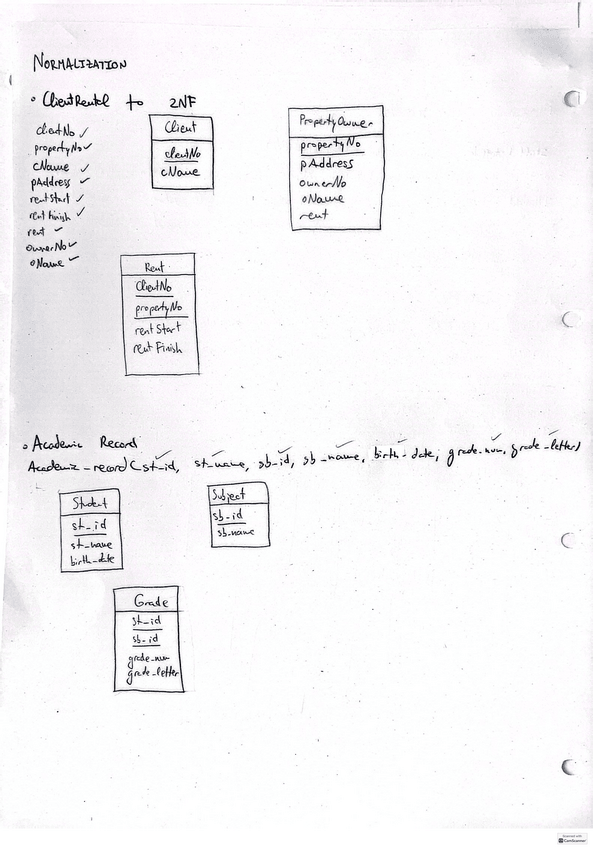 NORMALIZATION
ClientRental to 2NF
clientNo ✓
propertyNo ✓
cName ✓
pAddress ✓
rentStart ✓
rentFinish ✓
rent ✓
ownerNo ✓
oName ✓
Client
clientNo
cName
PropertyOwner
propertyNo
pAddress
ownerNo
oName
rent
Rent
ClientNo
propertyNo
rentStart
rentFinish
Academic Record
Academic_record (st_id, st_name, sb_id, sb_name, birth_date, grade_num, grade_letter)
Student
st_id
st_name
birth_date
Subject
sb_id
sb_name
Grade
st_id
sb_id
grade_num
grade_letter
Scanned with
CamScanner